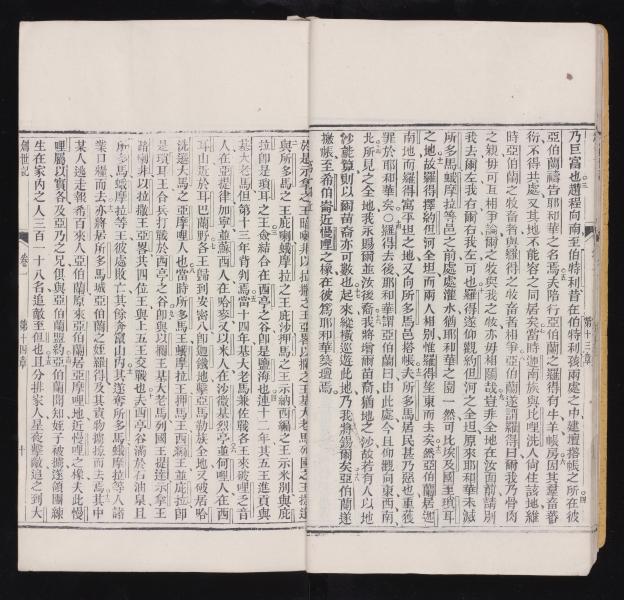 乃巨富也遷程向南至伯特利昔在伯特利該兩處之中建壇搭帳之所在彼
亞伯蘭禱告耶和華之名焉夫陪行亞伯蘭之羅得有牛羊帳房因其羣畜蕃
衍不得共處又其地不能容之同居矣當時迦南族與比哩洗人尚住該地維
時亞伯蘭之牧畜者與羅得之牧畜者相爭亞伯蘭遂謂羅得曰爾我乃骨肉
之親毋可互相爭論爾之牧與我之牧亦毋相鬬哉豈非全地在汝面前請別
我去爾左我右爾右我左可也羅得遂仰觀約但河之全坦原來耶和華未滅
所多馬蛾摩拉等邑之前處處灌水猶耶和華之園一然可比埃及國至瑣耳
之地故羅得擇約但河全坦而兩人相別惟羅得望東而去矣然亞伯蘭居迦
南地而羅得寓平坦之地又向所多馬邑搭帳夫所多馬居民甚乃惡也重獲
罪於耶和華矣羅得去後耶和華謂亞伯蘭曰由此處今且仰觀向東西南
北所見之全地我永賜爾並汝後裔我將增爾苗裔猶地之沙故若有人以地
沙能算則以爾苗裔亦可數也起來縱橫巡遊此地乃我將錫爾矣亞伯蘭遂
搬帳至希伯崙近慢哩之橡在彼爲耶和華築壇焉
第十三章
與所多馬之王庇喇蛾摩拉之王庇沙押馬之王示納西編之王示米別與庇
拉卽是瑣耳之王僉結合在西亭之谷卽是鹽海也連十二年其五王進貢與
基大老馬但十三年背判焉當十四年基大老馬兼佐戰各王來破哩之音
人在亞提律加寧並蘇西人在哈麥又以米人在沙微基烈亭並何哩人在西
耳山近於耳巴蘭野各王歸到安密八卽迦鐵地擊亞馬勒族全地又破居哈
洗遜大馬之亞摩哩人也當時所多馬王蛾摩拉王押馬王西編王並庇拉卽
是瑣耳王合兵打戰於西亭之谷卽與以攔王基大老馬列國王提達示拿王
暗喇非以拉撒王亞畧共四位王與上五王交戰也夫西亭谷滿於石油泉且
所多馬蛾摩拉等王在彼處敗亡其餘奔竄山內其王遂奪所多馬蛾摩拉等人諸
業口糧而去亦將居所多馬城亞伯蘭之姪羅得及其貨物擄掠而去焉其中
某人逃走報希百來人亞伯蘭原來亞伯蘭居亞摩哩地近慢哩之橡夫此慢
哩屬以實各及亞乃之兄俱與亞伯蘭盟約亞伯蘭聞知姪子被擄遂領團練
生在家內之人三百一十八名追敵至但也且分排家人星夜擊敵追之到大
創世記
卷一
第十四章
十